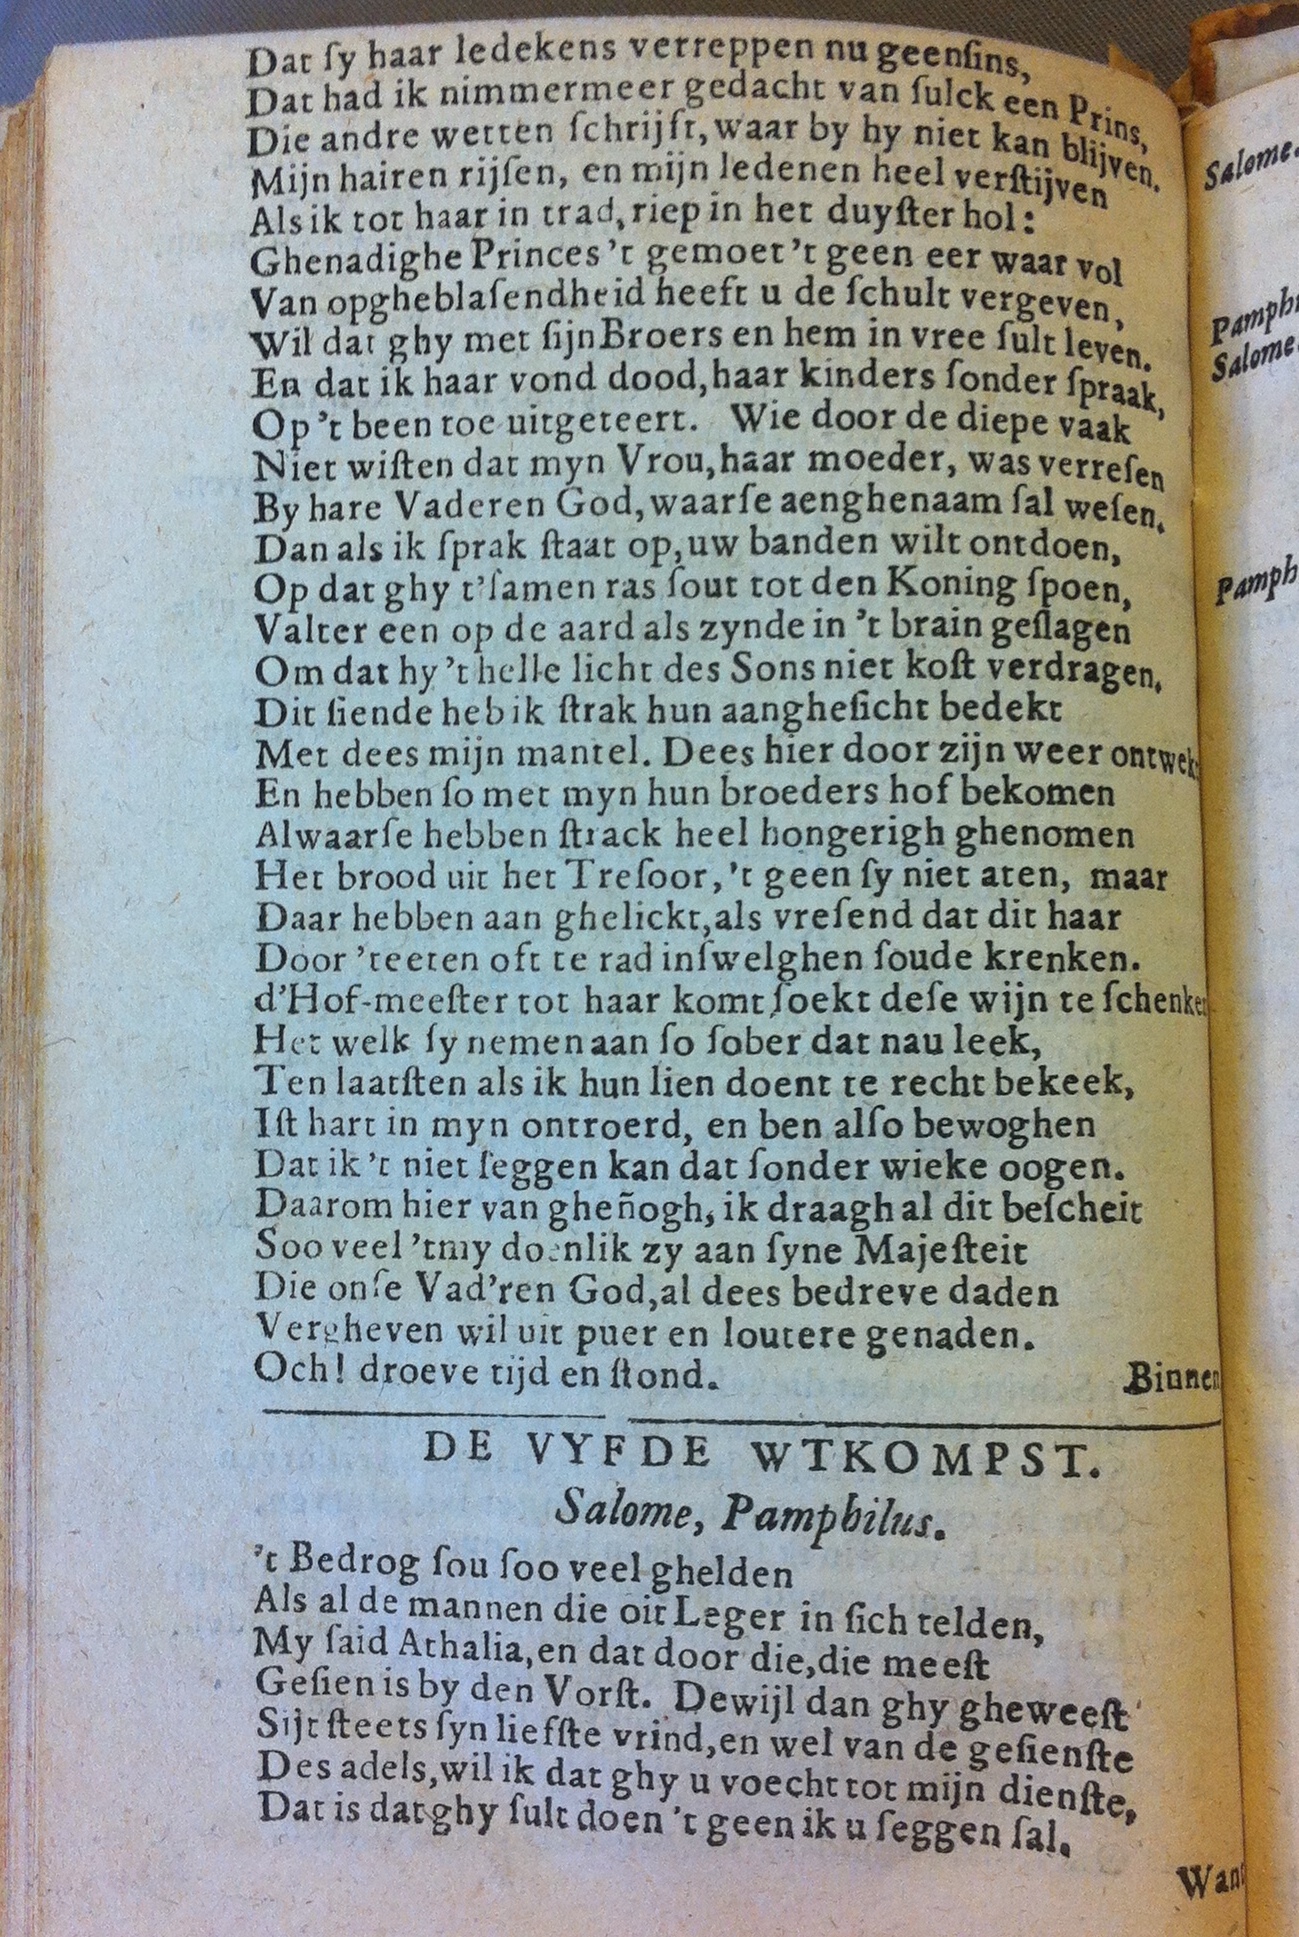 Dat ſy haar ledekens verreppen nu geenſins,
Dat had ik nimmermeer gedacht van ſulck een Prins,
Die andre wetten ſchrijft, waar by hy niet kan blijven.
Mijn hairen rijſen, en mijn ledenen heel verſtijven
Als ik tot haar in trad, riep in het duyſter hol:
Ghenadighe Princes 't gemoet 't geen eer waar vol
Van opgheblaſendheid heeft u de ſchult vergeven,
Wil dat ghy met ſijn Broers en hem in vree ſult leven.
En dat ik haar vond dood, haar kinders ſonder ſpraak,
Op 't been toe uitgeteert. Wie door de diepe vaak
Niet wiſten dat myn Vrou, haar moeder, was verreſen
By hare Vaderen God, waarſe aenghenaam ſal weſen.
Dan als ik ſprak ſtaat op, uw banden wilt ontdoen,
Op dat ghy t'ſamen ras ſout tot den Koning ſpoen,
Valter een op de aard als zynde in 't brain geſlagen
Om dat hy 't helle licht des Sons niet koſt verdragen,
Dit ſiende heb ik ſtrak hun aangheſicht bedekt
Met dees mijn mantel. Dees hier door zijn weer ontwekt
En hebben ſo met myn hun broeders hof bekomen
Alwaarſe hebben ſtrack heel hongerigh ghenomen
Het brood uit het Treſoor, 't geen ſy niet aten, maar
Daar hebben aan ghelickt, als vreſend dat dit haar
Door 'teeten oft te rad inſwelghen ſoude krenken.
d'Hof-meeſter tot haar komt ſoekt deſe wijn te ſchenken
Het welk ſy nemen aan ſo ſober dat nau leek,
Ten laatſten als ik hun lien doent te recht bekeek,
Iſt hart in myn ontroerd, en ben alſo bewoghen
Dat ik 't niet ſeggen kan dat ſonder wieke oogen.
Daarom hier van gheñogh, ik draagh al dit beſcheit
Soo veel 'tmy doenlik zy aan ſyne Majeſteit
Die onſe Vad'ren God, al dees bedreve daden
Vergheven wil uit puer en loutere genaden.
Och! droeve tijd en ſtond. Binnen
DE VYFDE WTKOMPST.
Salome, Pamphilus.
't Bedrog ſou ſoo veel ghelden
Als al de mannen die oit Leger in ſich telden,
My ſaid Athalia, en dat door die, die meeſt
Geſien is by den Vorſt. Dewijl dan ghy gheweeſt
Sijt ſteets ſyn liefſte vrind, en wel van de geſienſte
Des adels, wil ik dat ghy u voecht tot mijn dienſte,
Dat is dat ghy ſult doen 't geen ik u ſeggen ſal.
Want
Salome.
Salome.